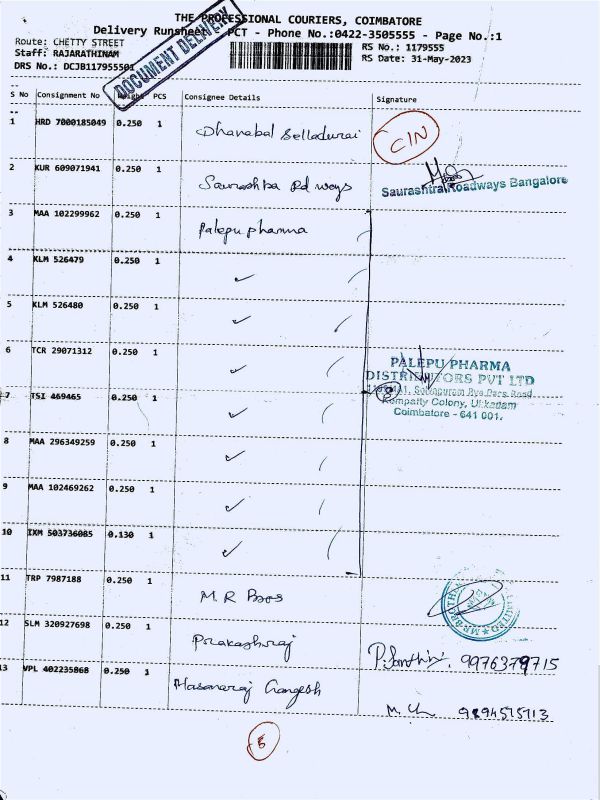 THE PROFESSIONAL COURIERS, COIMBATORE
Delivery Runsheet - PCT - Phone No.:0422-3505555 - Page No.:1
DOCUMENT DELIVERY
Route: CHETTY STREET
Staff: RAJARATHINAM
DRS No.: DCJB117955501
RS No.: 1179555
RS Date: 31-May-2023
S No Consignment No Weight PCS Consignee Details Signature
1 HRD 7000185049 0.250 1 Dhanabal Selladurai CIN
2 KUR 609071941 0.250 1 Saurashtra Rd ways
Saurashtra Roadways Bangalore
3 MAA 102299962 0.250 1 Palepu pharma
4 KLM 526479 0.250 1 ✓
5 KLM 526480 0.250 1 ✓
6 TCR 29071312 0.250 1 ✓
PALEPU PHARMA
DISTRIBUTORS PVT LTD
7 TSI 469465 0.250 1 ✓
Colony, Ukkadam
Coimbatore - 641 001.
8 MAA 296349259 0.250 1 ✓
9 MAA 102469262 0.250 1 ✓
10 IXM 503736085 0.130 1 ✓
11 TRP 7987188 0.250 1 M.R Bros
12 SLM 320927698 0.250 1 Prakashraj P. Santhi. 9976379715
13 VPL 402235868 0.250 1 9894515113
5